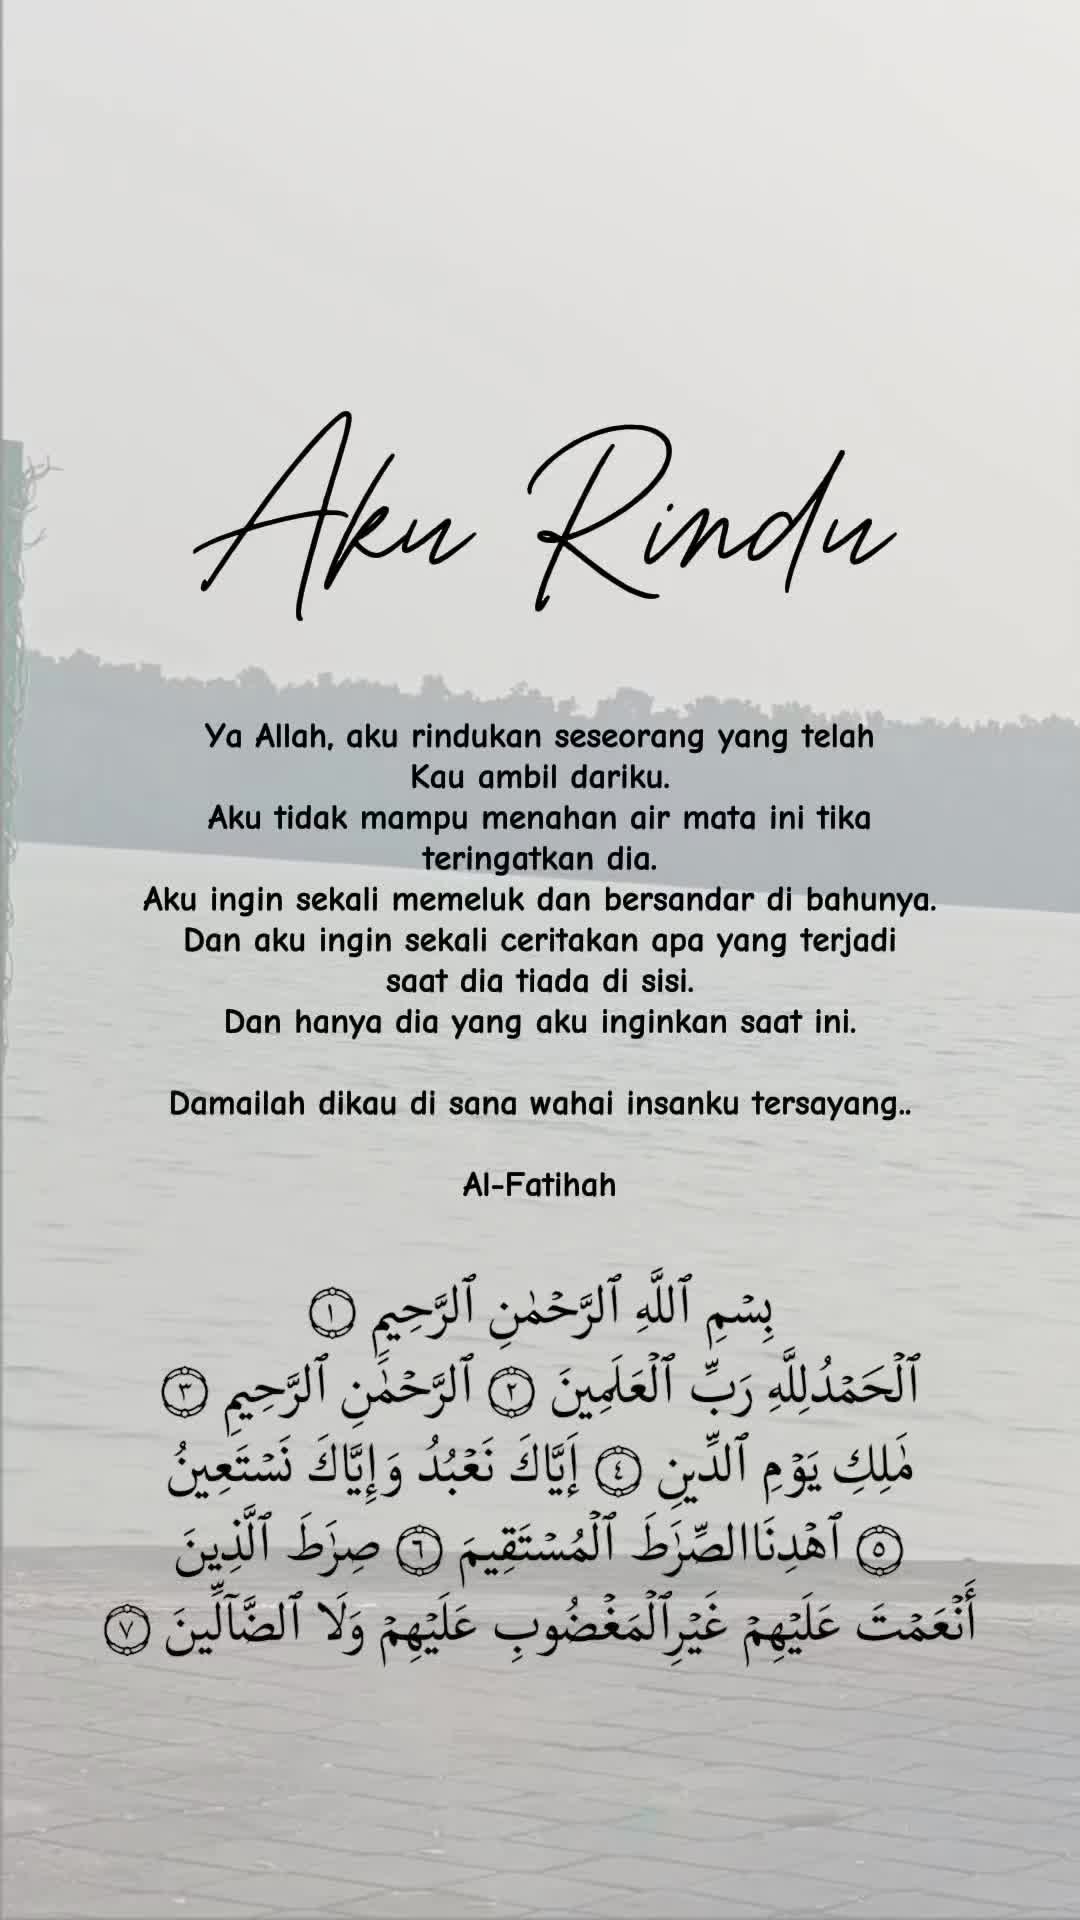 Aku Rindu
Ya Allah, aku rindukan seseorang yang telah
Kau ambil dariku.
Aku tidak mampu menahan air mata ini tika
teringatkan dia.
Aku ingin sekali memeluk dan bersandar di bahunya.
Dan aku ingin sekali ceritakan apa yang terjadi
saat dia tiada di sisi.
Dan hanya dia yang aku inginkan saat ini.
Damailah dikau di sana wahai insanku tersayang..
Al-Fatihah
بِسْمِ ٱللَّهِ ٱلرَّحْمَٰنِ ٱلرَّحِيمِ ١
ٱلْحَمْدُلِلَّهِ رَبِّ ٱلْعَٰلَمِينَ ٢ ٱلرَّحْمَٰنِ ٱلرَّحِيمِ ٣
مَٰلِكِ يَوْمِ ٱلدِّينِ ٤ إِيَّاكَ نَعْبُدُ وَإِيَّاكَ نَسْتَعِينُ
٥ ٱهْدِنَاالصِّرَٰطَ ٱلْمُسْتَقِيمَ ٦ صِرَٰطَ ٱلَّذِينَ
أَنْعَمْتَ عَلَيْهِمْ غَيْرِٱلْمَغْضُوبِ عَلَيْهِمْ وَلَا ٱلضَّآلِّينَ ٧